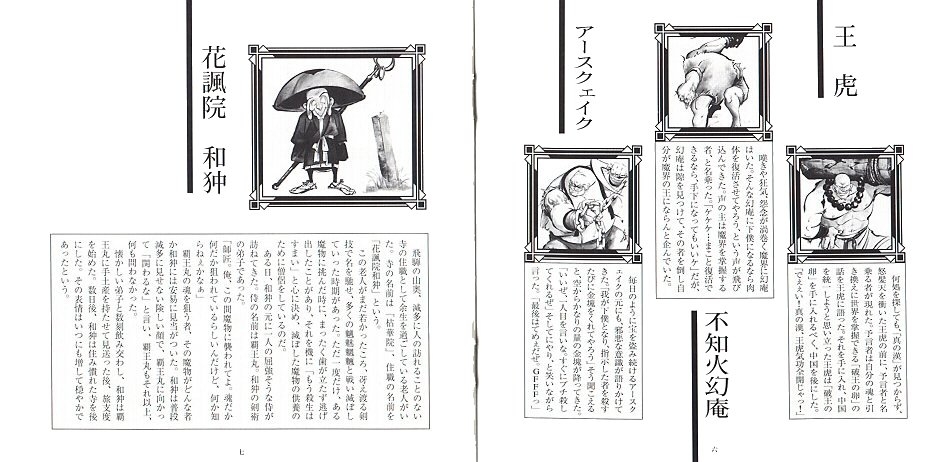 王虎
何処を探しても、「真の漢」が見つからず、
怒髪天を衝いた王虎の前に、予言者と名
乗る者が現れた。予言者は自分の魂と引
き換えに世界を掌握できる「破王の卵」の
話を王虎に語った。それを手に入れ、中国
を統一しようと思い立った王虎は「破王の
卵」を手に入れるべく、中国を後にした。
「ええい!真の漢、王虎気功全開じゃっ!」
不知火幻庵
嘆きや狂気、怨念が渦巻く魔界に幻庵
はいた。そんな幻庵に下僕になるなら肉
体を復活させてやろう、という声が飛び
込んできた。声の主は魔界を掌握する
者、と名乗った。「ケケケ…まこと復活で
きるなら、手下になってもいいケ」だが、
幻庵は隙を見つけて、その者を倒し自
分が魔界の王にならんと企んでいた。
アースクェイク
毎日のように宝を盗み続けるアースク
ェイクの元にも、邪悪な意識が語りかけて
きた。「我が下僕となり、指示した者を殺す
たびに金塊をくれてやろう」そう聞こえる
と、空からかなりの量の金塊が降ってきた。
「いいぜ、人目を言いな。すぐにブチ殺し
てくれるぜ」そしてにやりと笑いながら
言った。「最後はてめえだぜ、GFFFっ」
六
花諷院 和狆
飛騨の山奥、滅多に人の訪れることのない
寺の住職として余生を過ごしている老人がい
た。寺の名前は「枯華院」、住職の名前を
「花諷院和狆」という。
この老人がまだ若かったころ、冴え渡る剣
技で名を馳せ、多くの魑魅魍魎と戦い滅ぼし
ていった時期があった。ただ一度だけ、ある
魔物に挑んだ時に、まったく歯が立たず逃げ
出したことがあり、それを機に「もう殺生は
すまい」と心に決め、滅ぼした魔物の供養の
ために僧侶をしているのだ。
ある日、和狆の元に一人の屈強そうな侍が
訪ねてきた。侍の名前は覇王丸。和狆の剣術
の弟子であった。
「師匠、俺、この間魔物に襲われてよ。魂だか
何だか狙われているらしいんだけど、何か知
らねえかなぁ」
覇王丸の魂を狙う者、その魔物がどんな者
か和狆には安易に見当がついた。和狆は普段
滅多に見せない険しい顔で、覇王丸に向かっ
て「関わるな」と言い、覇王丸もそれ以上、
何も問わなかった。
懐かしい弟子と数刻飲み交わし、和狆は覇
王丸に手土産を持たせて見送った後、旅支度
を始めた。数日後、和狆は住み慣れた寺を後
にした。その表情はいつにも増して穏やかで
あったという。
七